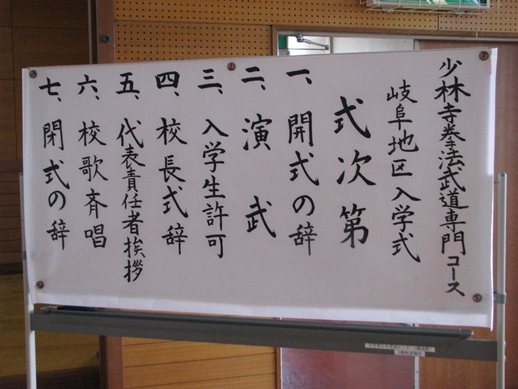 少林寺拳法武道専門コース
岐阜地区入学式
式次第
一、開式の辞
二、演武
三、入学生許可
四、校長式辞
五、代表責任者挨拶
六、校歌斉唱
七、閉式の辞